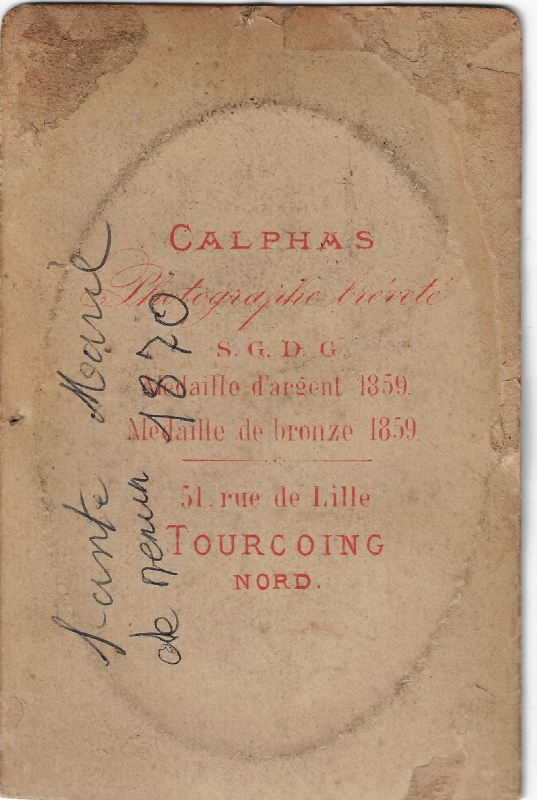 CALPHAS
Photographe bréveté
S. G. D. G.
Médaille d'argent 1859.
Médaille de bronze 1859.
51. rue de Lille
TOURCOING
NORD.
tante Marie
de menin 1870